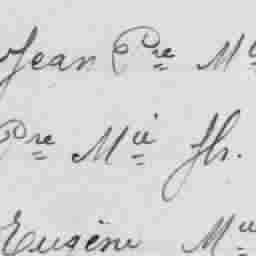 Jean Pre M
Pre Mie fh.
Eugène Mie